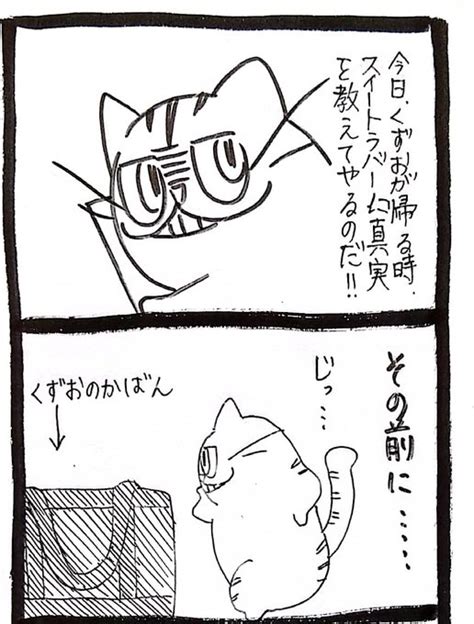 今日、くずおが帰る時、
スイートラバーに真実
を教えてやるのだ!!
その前に……
じっ…
くずおのかばん